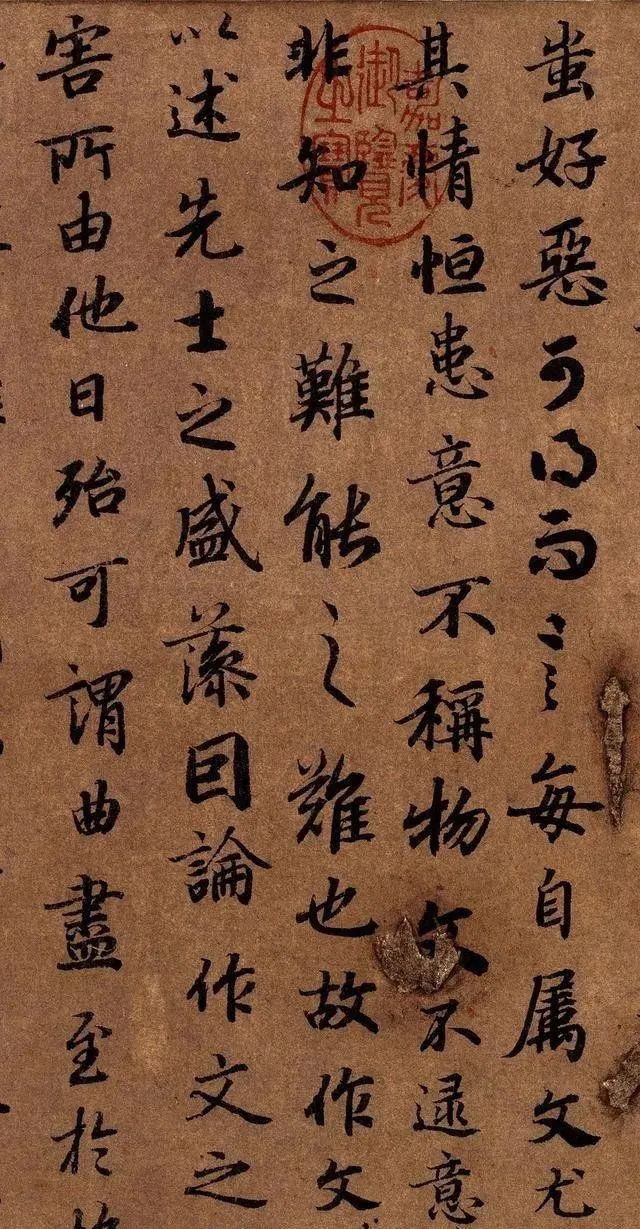 蚩好惡可得而言每自属文尤
其情恒患意不稱物文不逮意
非知之難能之難也故作文
以述先士之盛藻因論作文之
害所由他日殆可謂曲盡至於
嘉慶
御覽
之寶